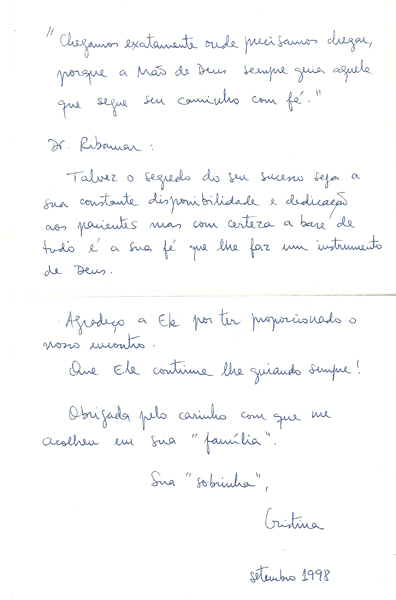 "Chegamos exatamente onde precisamos chegar,
porque a Mão de Deus sempre guia aquele
que segue seu caminho com fé."
Dr. Ribamar:
Talvez o segredo do seu sucesso seja a
sua constante disponibilidade e dedicação
aos pacientes mas com certeza a base de
tudo é a sua fé que lhe faz um instrumento
de Deus.
Agradeço a Ele por ter proporcionado o
nosso encontro.
Que Ele continue lhe guiando sempre!
Obrigada pelo carinho com que me
acolheu em sua "família".
Sua "sobrinha",
Cristina
setembro 1998